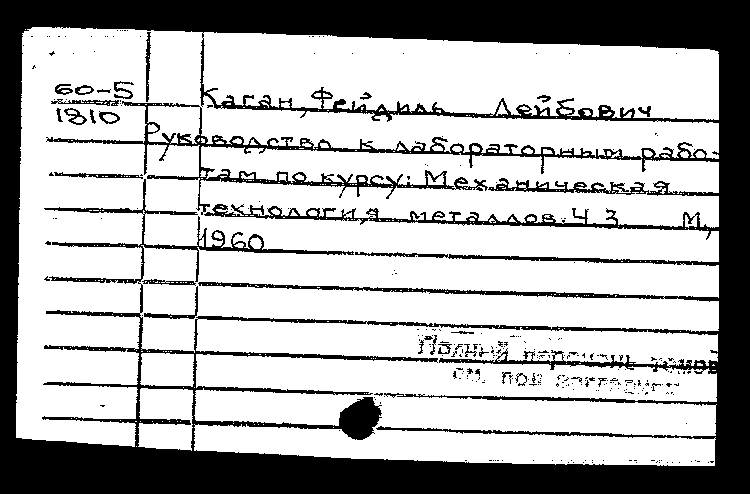 60-5
1810
Каган, Фейдиль Лейбович
Руководство к лабораторным рабо-
там по курсу: Механическая
технология металлов. Ч 3 М,
1960
Полный перечень томов
см. под заглавием